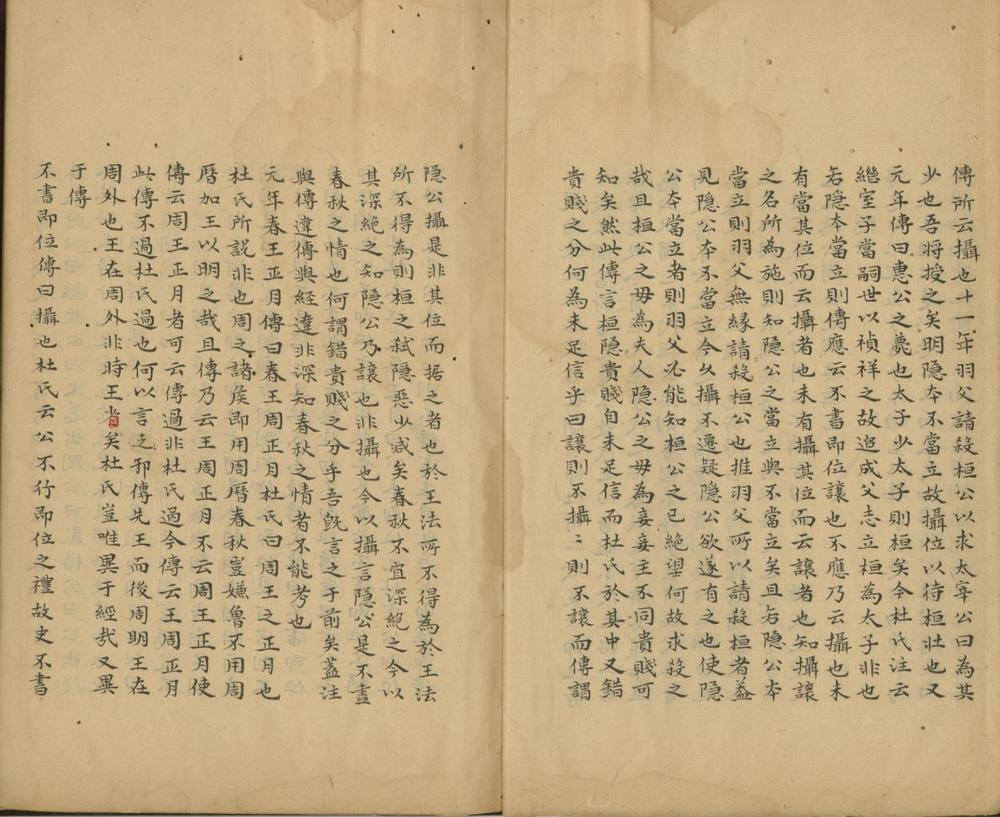 傳所云攝也十一年羽父請殺桓公以求太宰公曰為其
少也吾將授之矣明隐本不當立故攝位以待桓壮也又
元年傳曰惠公之薨也太子少太子則桓矣今杜氏注云
繼室子當嗣世以禎祥之故追成父志立桓為太子非也
若隐本當立則傳應云不書即位讓也不應乃云攝也未
有當其位而云攝者也未有攝其位而云讓者也知攝讓
之名所為施則知隐公之當立與不當立矣且若隐公本
當立則羽父無緣請殺桓公也推羽父所以請殺桓者益
見隐公本不當立今久攝不遷疑隐公欲遂有之也使隐
公本當立者則羽父必能知桓公之已絕望何故求殺之
哉且桓公之毋為夫人隐公之毋為妾妾主不同貴賤可
知矣然此傳言桓隐貴賤自未足信而杜氏於其中又錯
貴賤之分何為未足信乎曰讓則不攝〻則不讓而傳謂
隐公攝是非其位而据之者也於王法所不得為於王法
所不得為則桓之弑隐惡少减矣春秋不宜深絕之今以
其深絕之知隐公乃讓也非攝也今以攝言隐公是不盡
春秋之情也何謂錯貴賤之分乎吾旣言之于前矣葢注
與傳違傳與經違非深知春秋之情者不能考也
元年春王正月傳曰春王周正月杜氏曰周王之正月也
杜氏所說非也周之諸侯即用周曆春秋豈嫌魯不用周
曆加王以明之哉且傳乃云王周正月不云周王正月使
傳云周王正月者可云傳過非杜氏過今傳云王周正月
此傳不過杜氏過也何以言之邪傳先王而後周明王在
周外也王在周外非時王者矣杜氏豈唯異于經㢤又異
于傳
不書即位傳曰攝也杜氏云公不行即位之禮故史不書